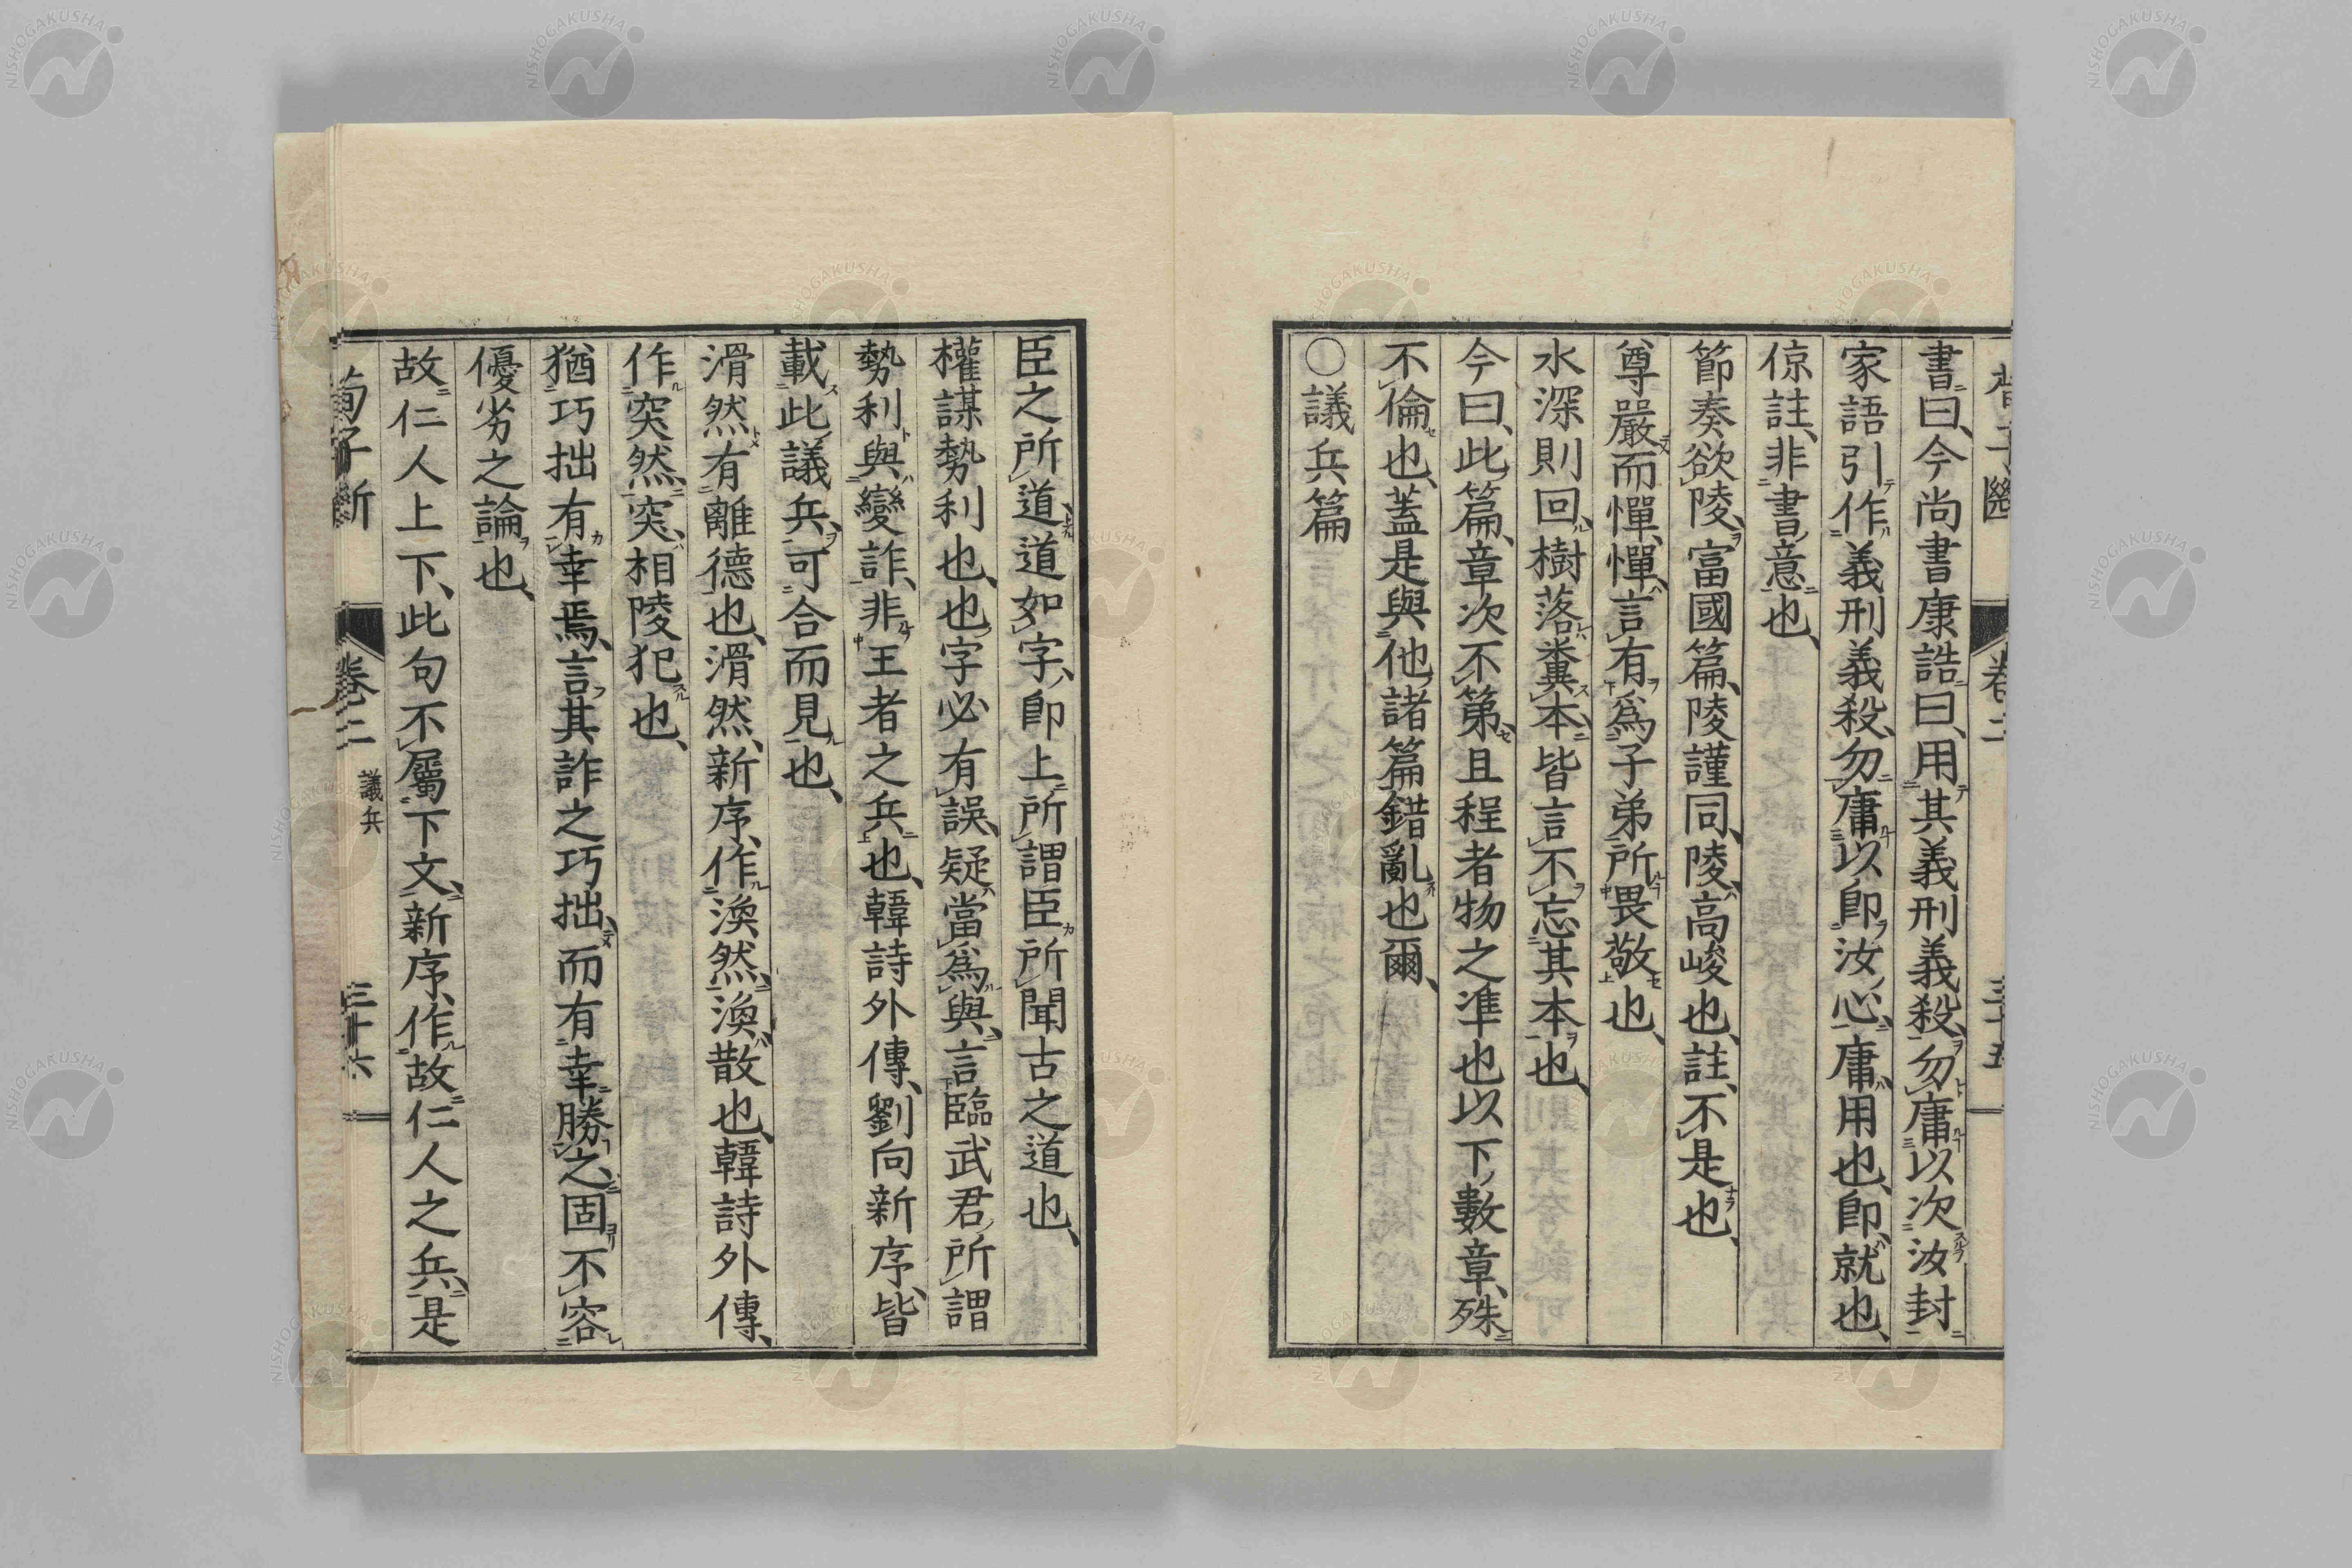 書曰、今尚書康誥曰、用其義刑義殺、勿庸以次汝封
家語引作義刑義殺、勿庸以卽汝心、庸用也、卽就也、
倞註、非書意也、
節奏欲陵、富國篇、陵謹同、陵高峻也、註、不是也、
尊嚴而憚、憚、言有爲子弟所畏敬也、
水深則回、樹落糞本、皆言不忘其本也、
今曰、此篇、章次不第、且程者物之準也以下、數章、殊
不倫也、蓋是與他諸篇錯亂也爾、
〇議兵篇
卷二
臣之所道、道如字、卽上所謂臣所聞古之道也、
權謀勢利也、也字必有誤、疑當爲與、言臨武君所謂
勢利與變詐、非王者之兵也、韓詩外傳、劉向新序、皆
載此議兵、可合而見也、
滑然有離德也、滑然、新序、作渙然、渙散也、韓詩外傳、
作突然、突、相陵犯也、
猶巧拙有幸焉、言其詐之巧拙、而有幸勝之、固不容
優劣之論也、
故仁人上下、此句不屬下文、新序、作故仁人之兵、是
荀子斷 卷二 議兵 三十六
NISHOGAKUSHA